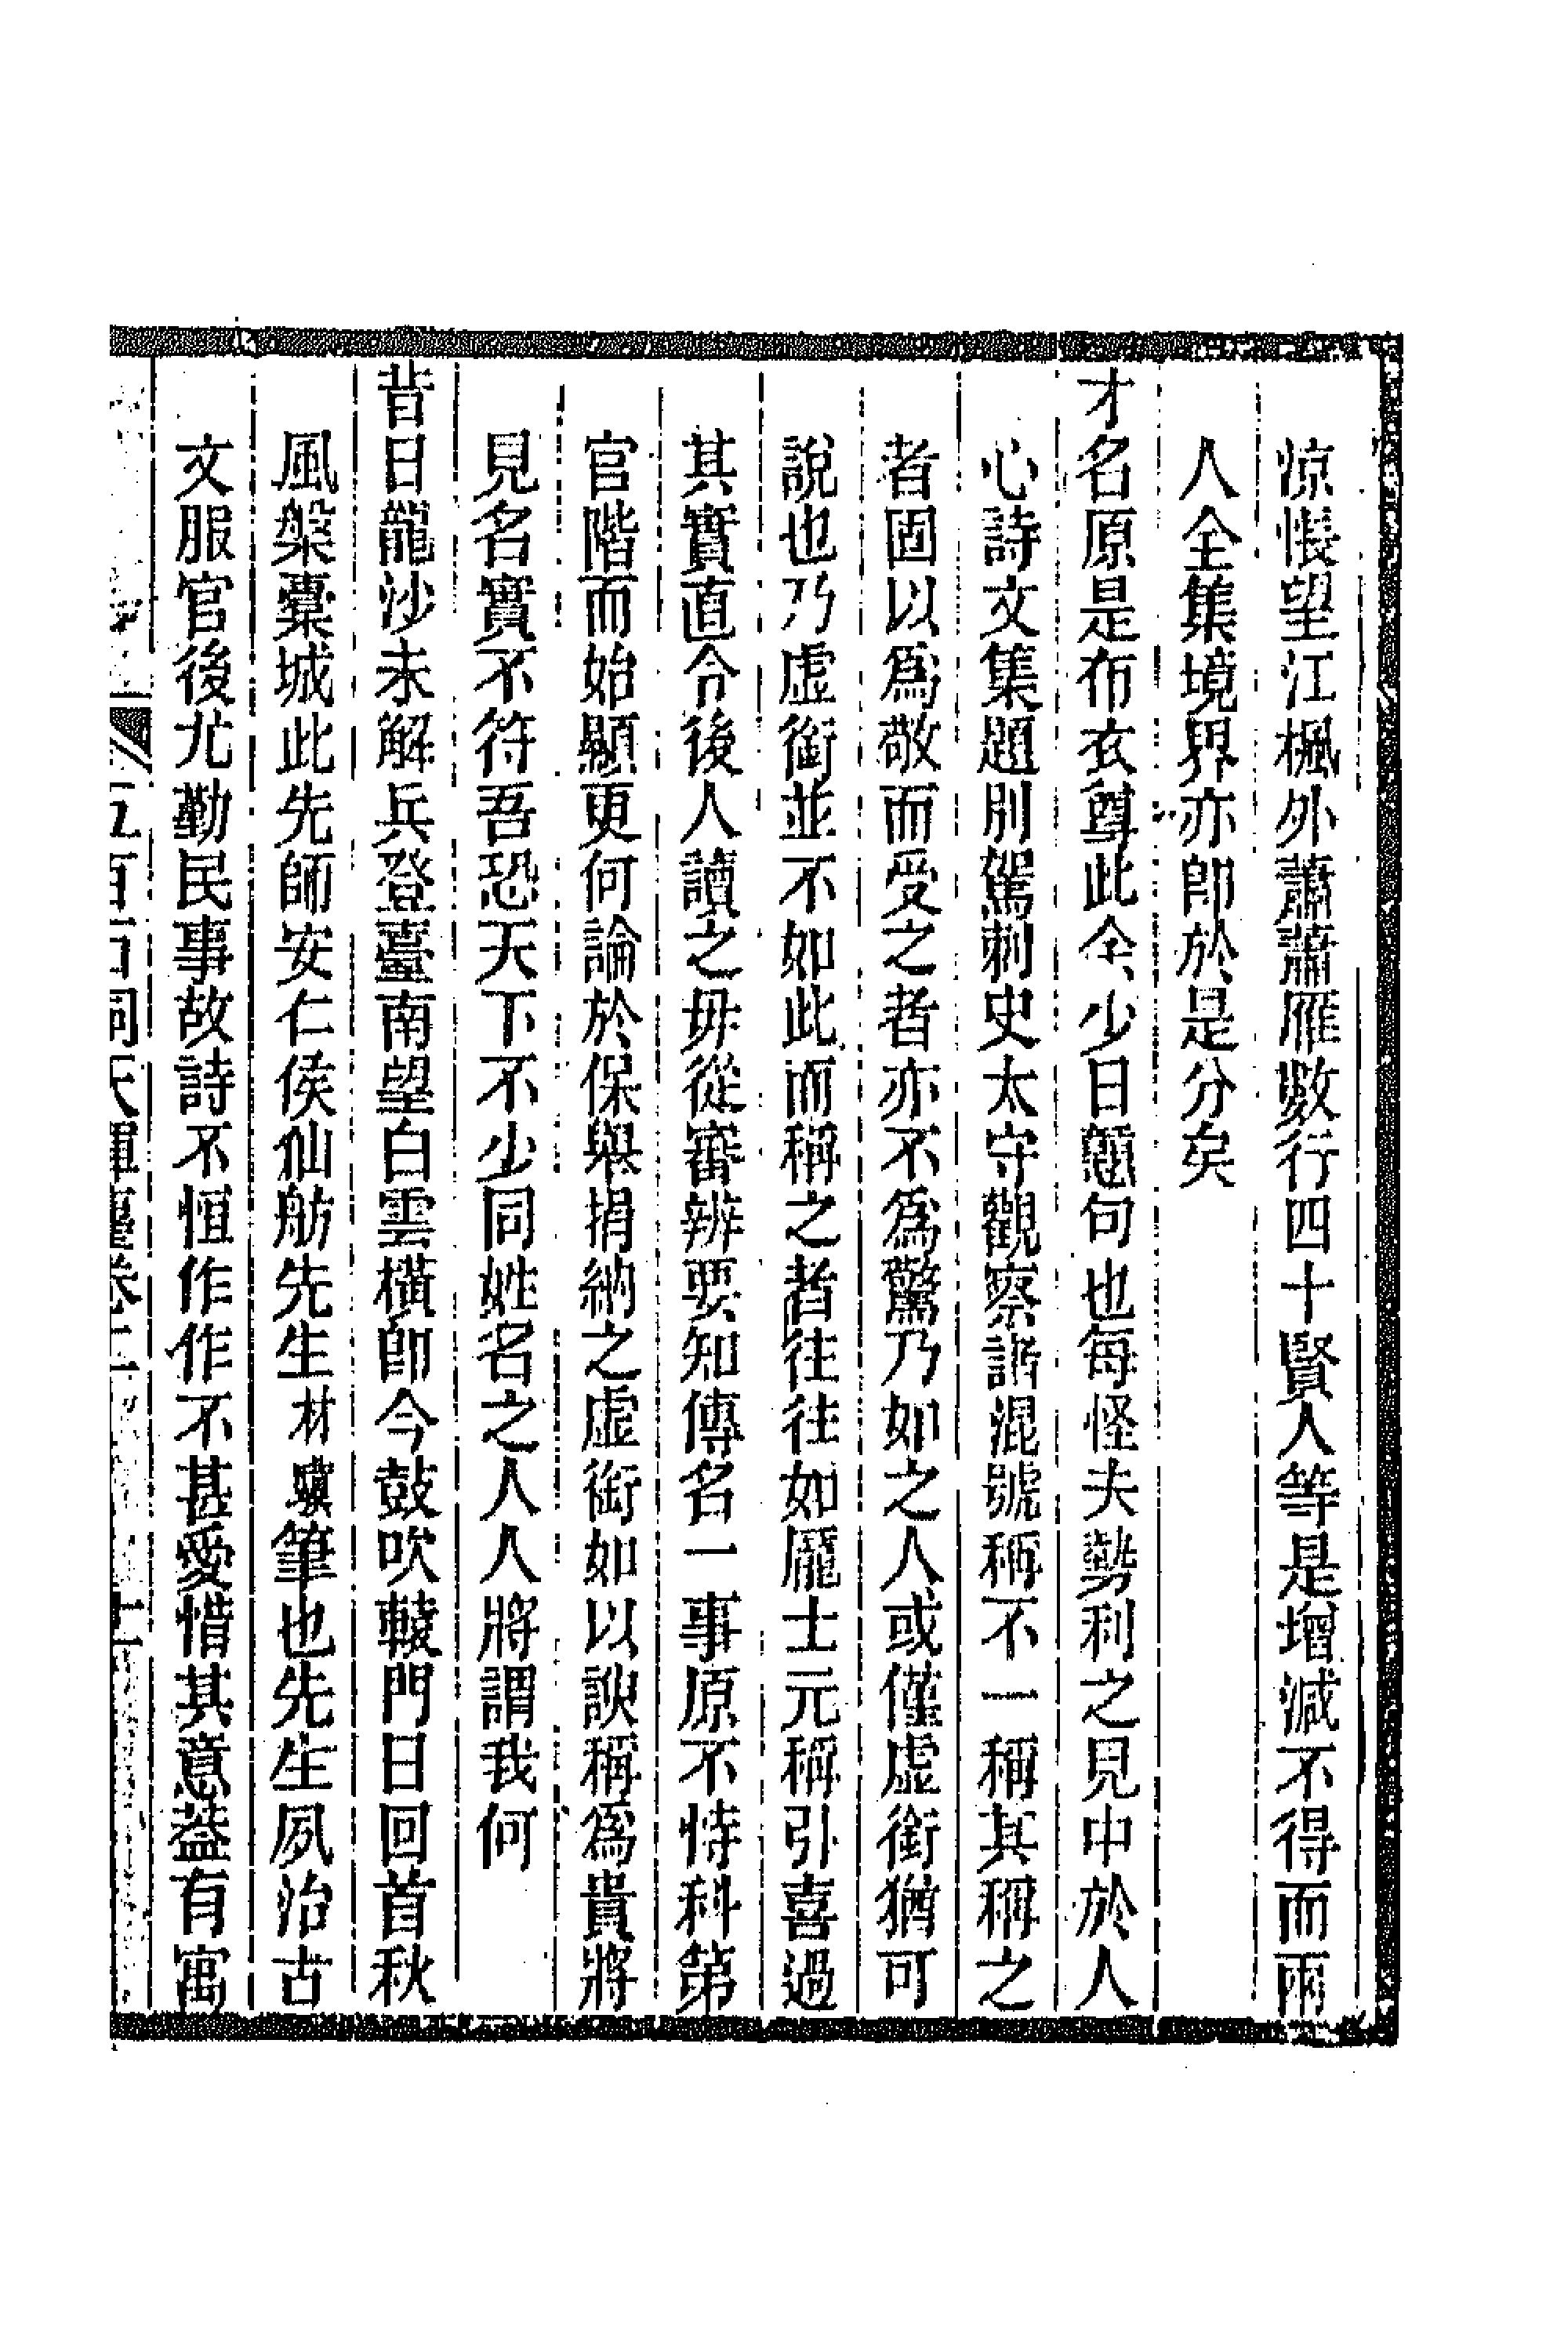 涼悵望江楓外蕭蕭雁數行四十賢人等是增減不得而兩
人全集境界亦卽於是分矣
才名原是布衣尊此余少日題句也每怪夫勢利之見中於人
心詩文集題別駕刺史太守觀察諸混號稱不一稱其稱之
者固以爲敬而受之者亦不爲驚乃如之人或僅虛銜猶可
說也乃虛銜並不如此而稱之者往往如龐士元稱引喜過
其實直令後人讀之毋從審辨要知傳名一事原不恃科第
官階而始顯更何論於保舉捐納之虛銜如以諛稱爲貴將
見名實不符吾恐天下不少同姓名之人人將謂我何
昔日龍沙未解兵登臺南望白雲橫卽今鼓吹轅門日回首秋
風槃槖城此先師安仁侯仙舫先生材驥筆也先生夙治古
文服官後尤勤民事故詩不恒作作不甚愛惜其意蓋有寓
五百石洞天揮麈卷二